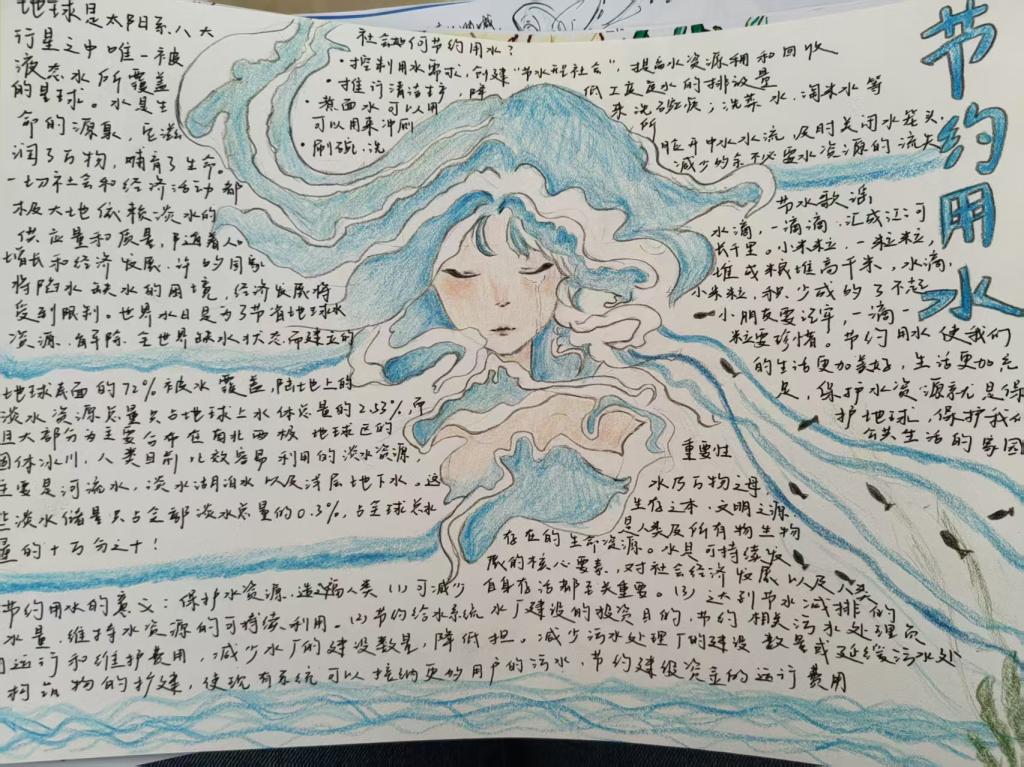 节约用水
地球是太阳系八大
行星之中唯一被
液态水所覆盖
的星球。水是生
命的源泉，它滋
润了万物，哺育了生命。
一切社会和经济活动都
极大地依赖淡水的
供应量和质量，随着人口
增长和经济发展，许的国家
将陷水缺水的困境，经济发展将
受到限制。世界水日是为了节省地球水
资源、解除全世界缺水状态而建立的
地球表面的72%被水覆盖，陆地上的
淡水资源总量只占地球上水体总量的2.53%，而
且大部分为主要分布在南北两极地球区的
固体冰川，人类目前比较容易利用的淡水资源，
主要是河流水，淡水湖泊水以及浅层地下水。这
些淡水储量只占全部淡水总量的0.3%，占全球总水
量的十万分之十！
社会如何节约用水？
·控制用水需求，创建“节水型社会”，提高水资源利用和回收
·推行清洁生产，降低工废水的排放量
·煮面水可以用来洗碗筷；洗菜水、淘米水等
可以用来冲厕所
·刷碗、洗脸开中水水流，及时关闭水笼头，
减少的余不必要水资源的流失
节水歌谣
水滴，一滴滴，汇成江河
长千里。小米粒，一粒粒，
堆成粮堆高千米，水滴，
小米粒，积少成的了不起
小朋友要记牢，一滴一
粒要珍惜。节约用水使我们
的生活更加美好，生活更加充
足，保护水资源就是保
护地球，保护我们
共生活的家园
重要性
水乃万物之母，
生存之本，文明之源
是人类及所有物生物
存在的生命资源。水是可持续发
展的核心要素，对社会经济发展以及人类
自身存活都至关重要。
节约用水的意义：保护水资源，造福人类 (1)可减少
水量，维持水资源的可持续利用。(2)节约给水系统水厂建设的投资
和运行和维护费用，减少水厂的建设数量，降低担。(3)达到节水减排的
目的，节约相关污水处理
减少污水处理厂的建设数量或延缓污水处
构筑物的扩建，使现有系统可以接纳更的用户的污水，节约建设资金的运行费用